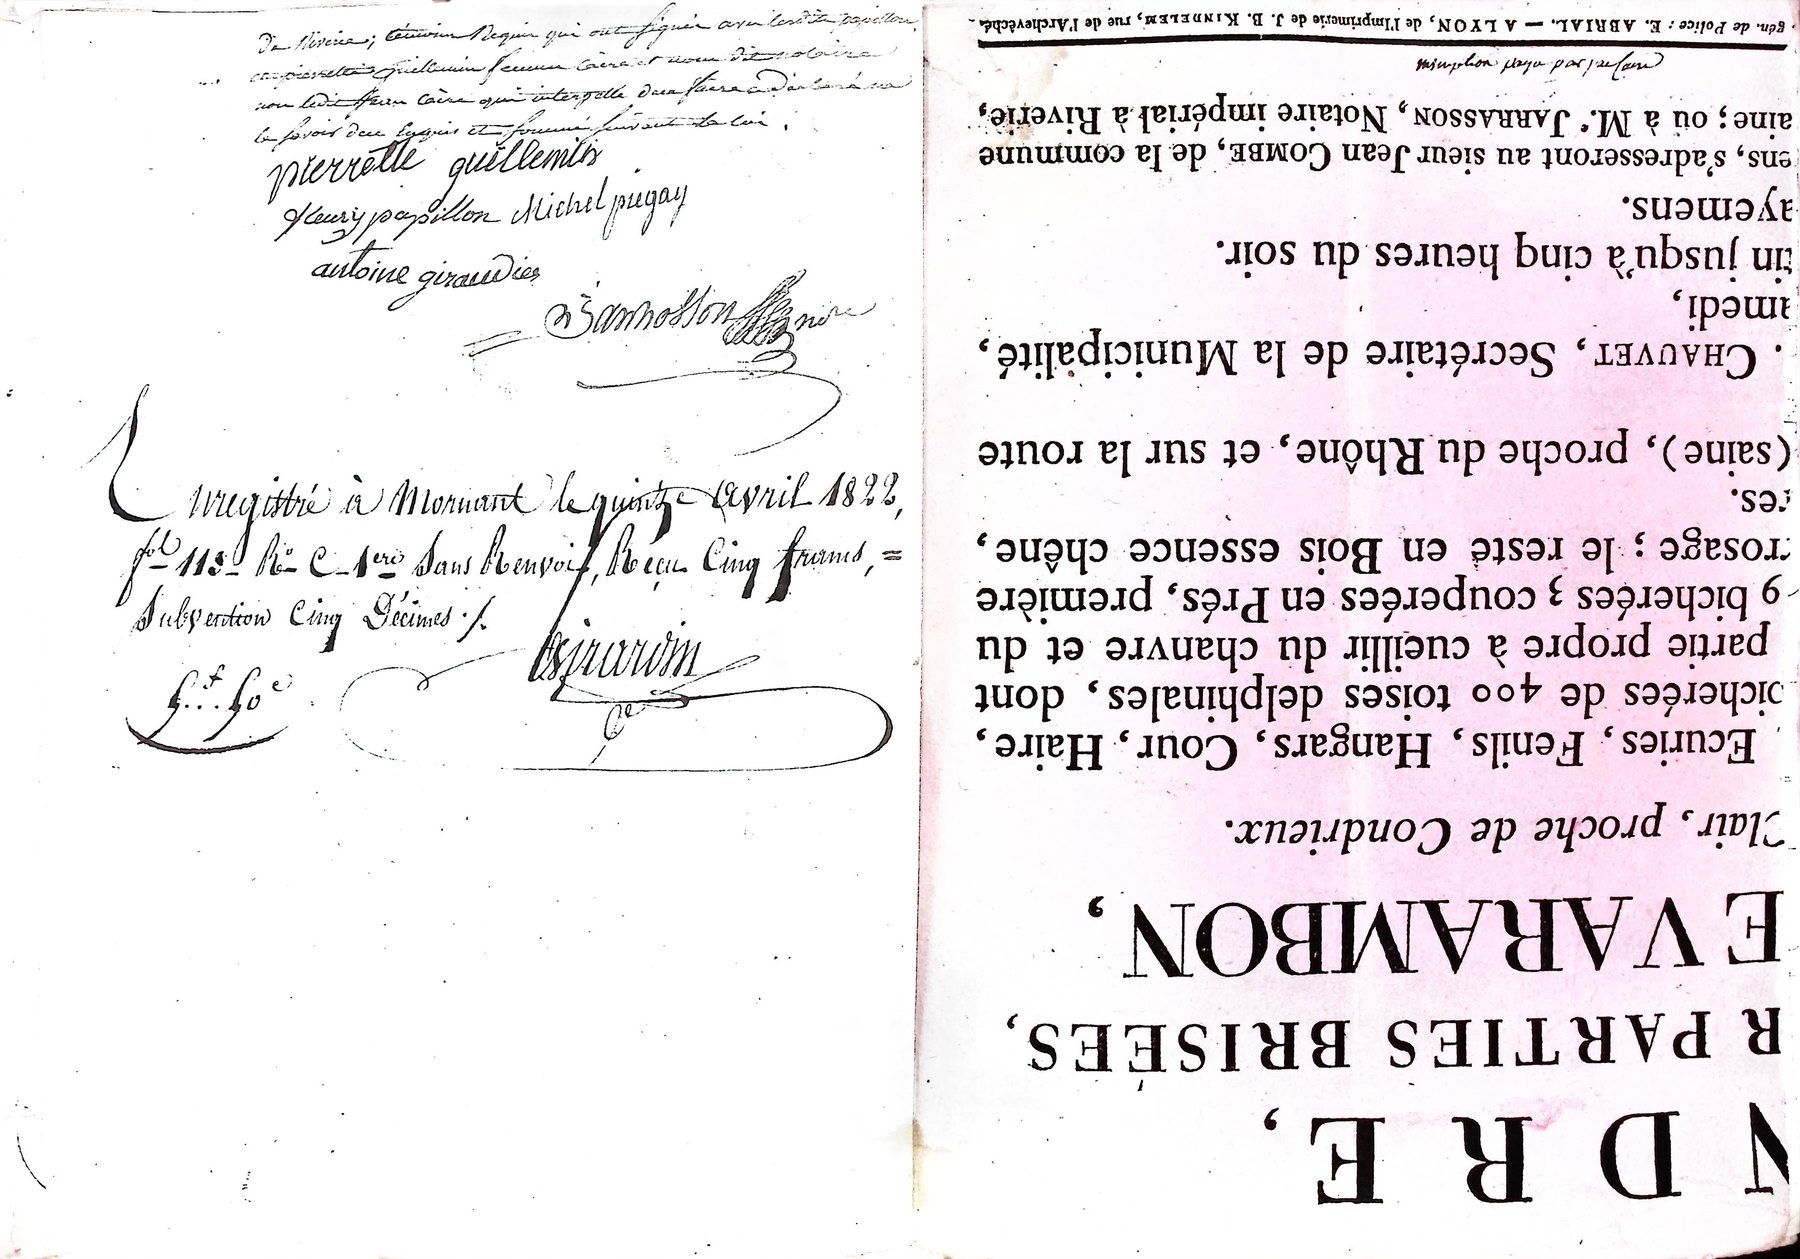 de Riverie, témoins Requis qui ont signés avec ledit papillon,
pierrette Guillemin femme Caire et nous dit notaire
non ledit sieur Caire qui interpellé de ce faire a déclaré ne
le savoir de ce enquis et sommé suivant la loi.
pierrette guëllemin
fleury papillon Michel piegay
antoine giraudier
Jarrosson nore
Enregistré à Mornant le quinze avril 1822,
fol 113 Ro C 1ere Sans Renvoi, Reçu Cinq francs, =
Subvention Cinq Décimes ./.
Girardin
5.f.. 50c
NDRE,
R PARTIES BRISÉES,
E VARAMBON,
Clair, proche de Condrieux.
, Ecuries, Fenils, Hangars, Cour, Haire,
bicherées de 400 toises delphinales, dont
partie propre à cueillir du chanvre et du
9 bicherées 3 couperées en Prés, première
rrosage ; le reste en Bois essence chêne,
res.
(saine), proche du Rhône, et sur la route
. CHAUVET, Secrétaire de la Municipalité,
amedi,
tin jusqu'à cinq heures du soir.
ayemens.
ens, s'adresseront au sieur Jean COMBE, de la commune
aine ; ou à M.e JARRASSON, Notaire impérial à Riverie,
par
. gén. de Police : E. ABRIAL. — A LYON, de l'Imprimerie de J. B. KINDELEM, rue de l'Archevêché.